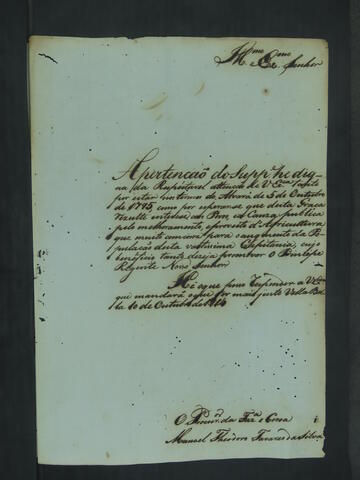 Illmo e Exmo
Senhor
A pertencaõ do Supp.e he dig
na da Respeitavel attencaõ de V Exa
por estar nos termos do Alvará de 5 de Outubro
de 1795 como por informar que desta Graça
rezulta ao Bem e a Cauza publica
pelo melhoramento e proveito d'Agricultura
que muito convem para e augmento da Po
pulacaõ desta vastissima Capitania, cujo
beneficio tanto deseja promover o Principe
Regente Nosso Senhor
He o que posso responder a V Exa
que mandará o que for mais justo Villa Bella
10 de Outubro de 1814
O Procur.or da Faz.a e Coroa
Manoel Theodoro Tavares da Silva